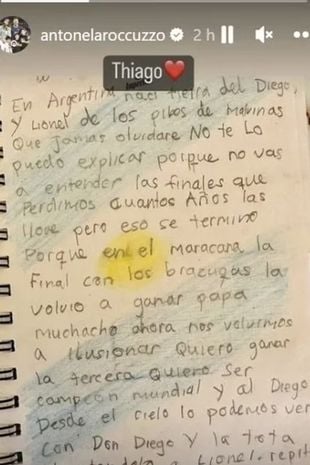 antonelaroccuzzo 2 h
Thiago
En Argentina naci tierra del Diego,
Y Lionel de los pibes de malvinas
Que Jamas olvidare No te Lo
puedo explicar porque no vas
a entender las finales que
Perdimos Cuantos Años las
llore pero eso se termino
Porque en el Maracana la
Final con los brazugas la
volvio a ganar papa
muchacho ahora nos volvimos
a ilusionar Quiero ganar
la tercera Quiero ser
campeon mundial y al Diego
Desde el cielo lo podemos ver
Con Don Diego y La tota
a Lionel.